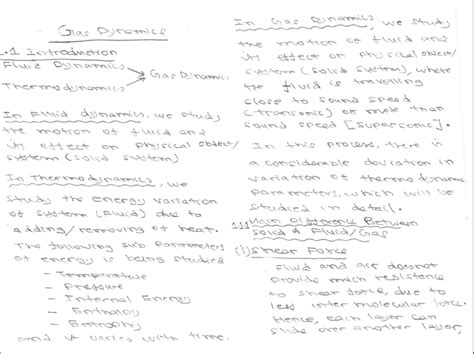 Gas Dynamics
1.1 Introduction
Fluid Dynamics
Thermodynamics
Gas Dynamics
In Fluid dynamics, we study
the motion of fluid and
its effect on physical object/
system (solid system)
In Thermodynamics, we
study the energy variation
of system (fluid) due to
adding/removing of heat.
The following sub parameters
of energy is being studied
- Temperature
- Pressure
- Internal Energy
- Enthalpy
- Entrophy
and it varies with time.
In Gas Dynamics, we study
the motion of fluid and
its effect on physical object/
system (solid system), where
the fluid is travelling
close to sound speed
(Transonic) or more than
sound speed [Supersonic].
In this process, there is
a considerable deviation in
variation of thermodynamic
parameters, which will be
studied in detail.
Major Difference Between
Solid & Fluid/Gas
(i) Shear Force
Fluid and air does not
provide much resistance
to shear force, due to
less inter molecular force.
Hence, each layer can
slide over another layer,